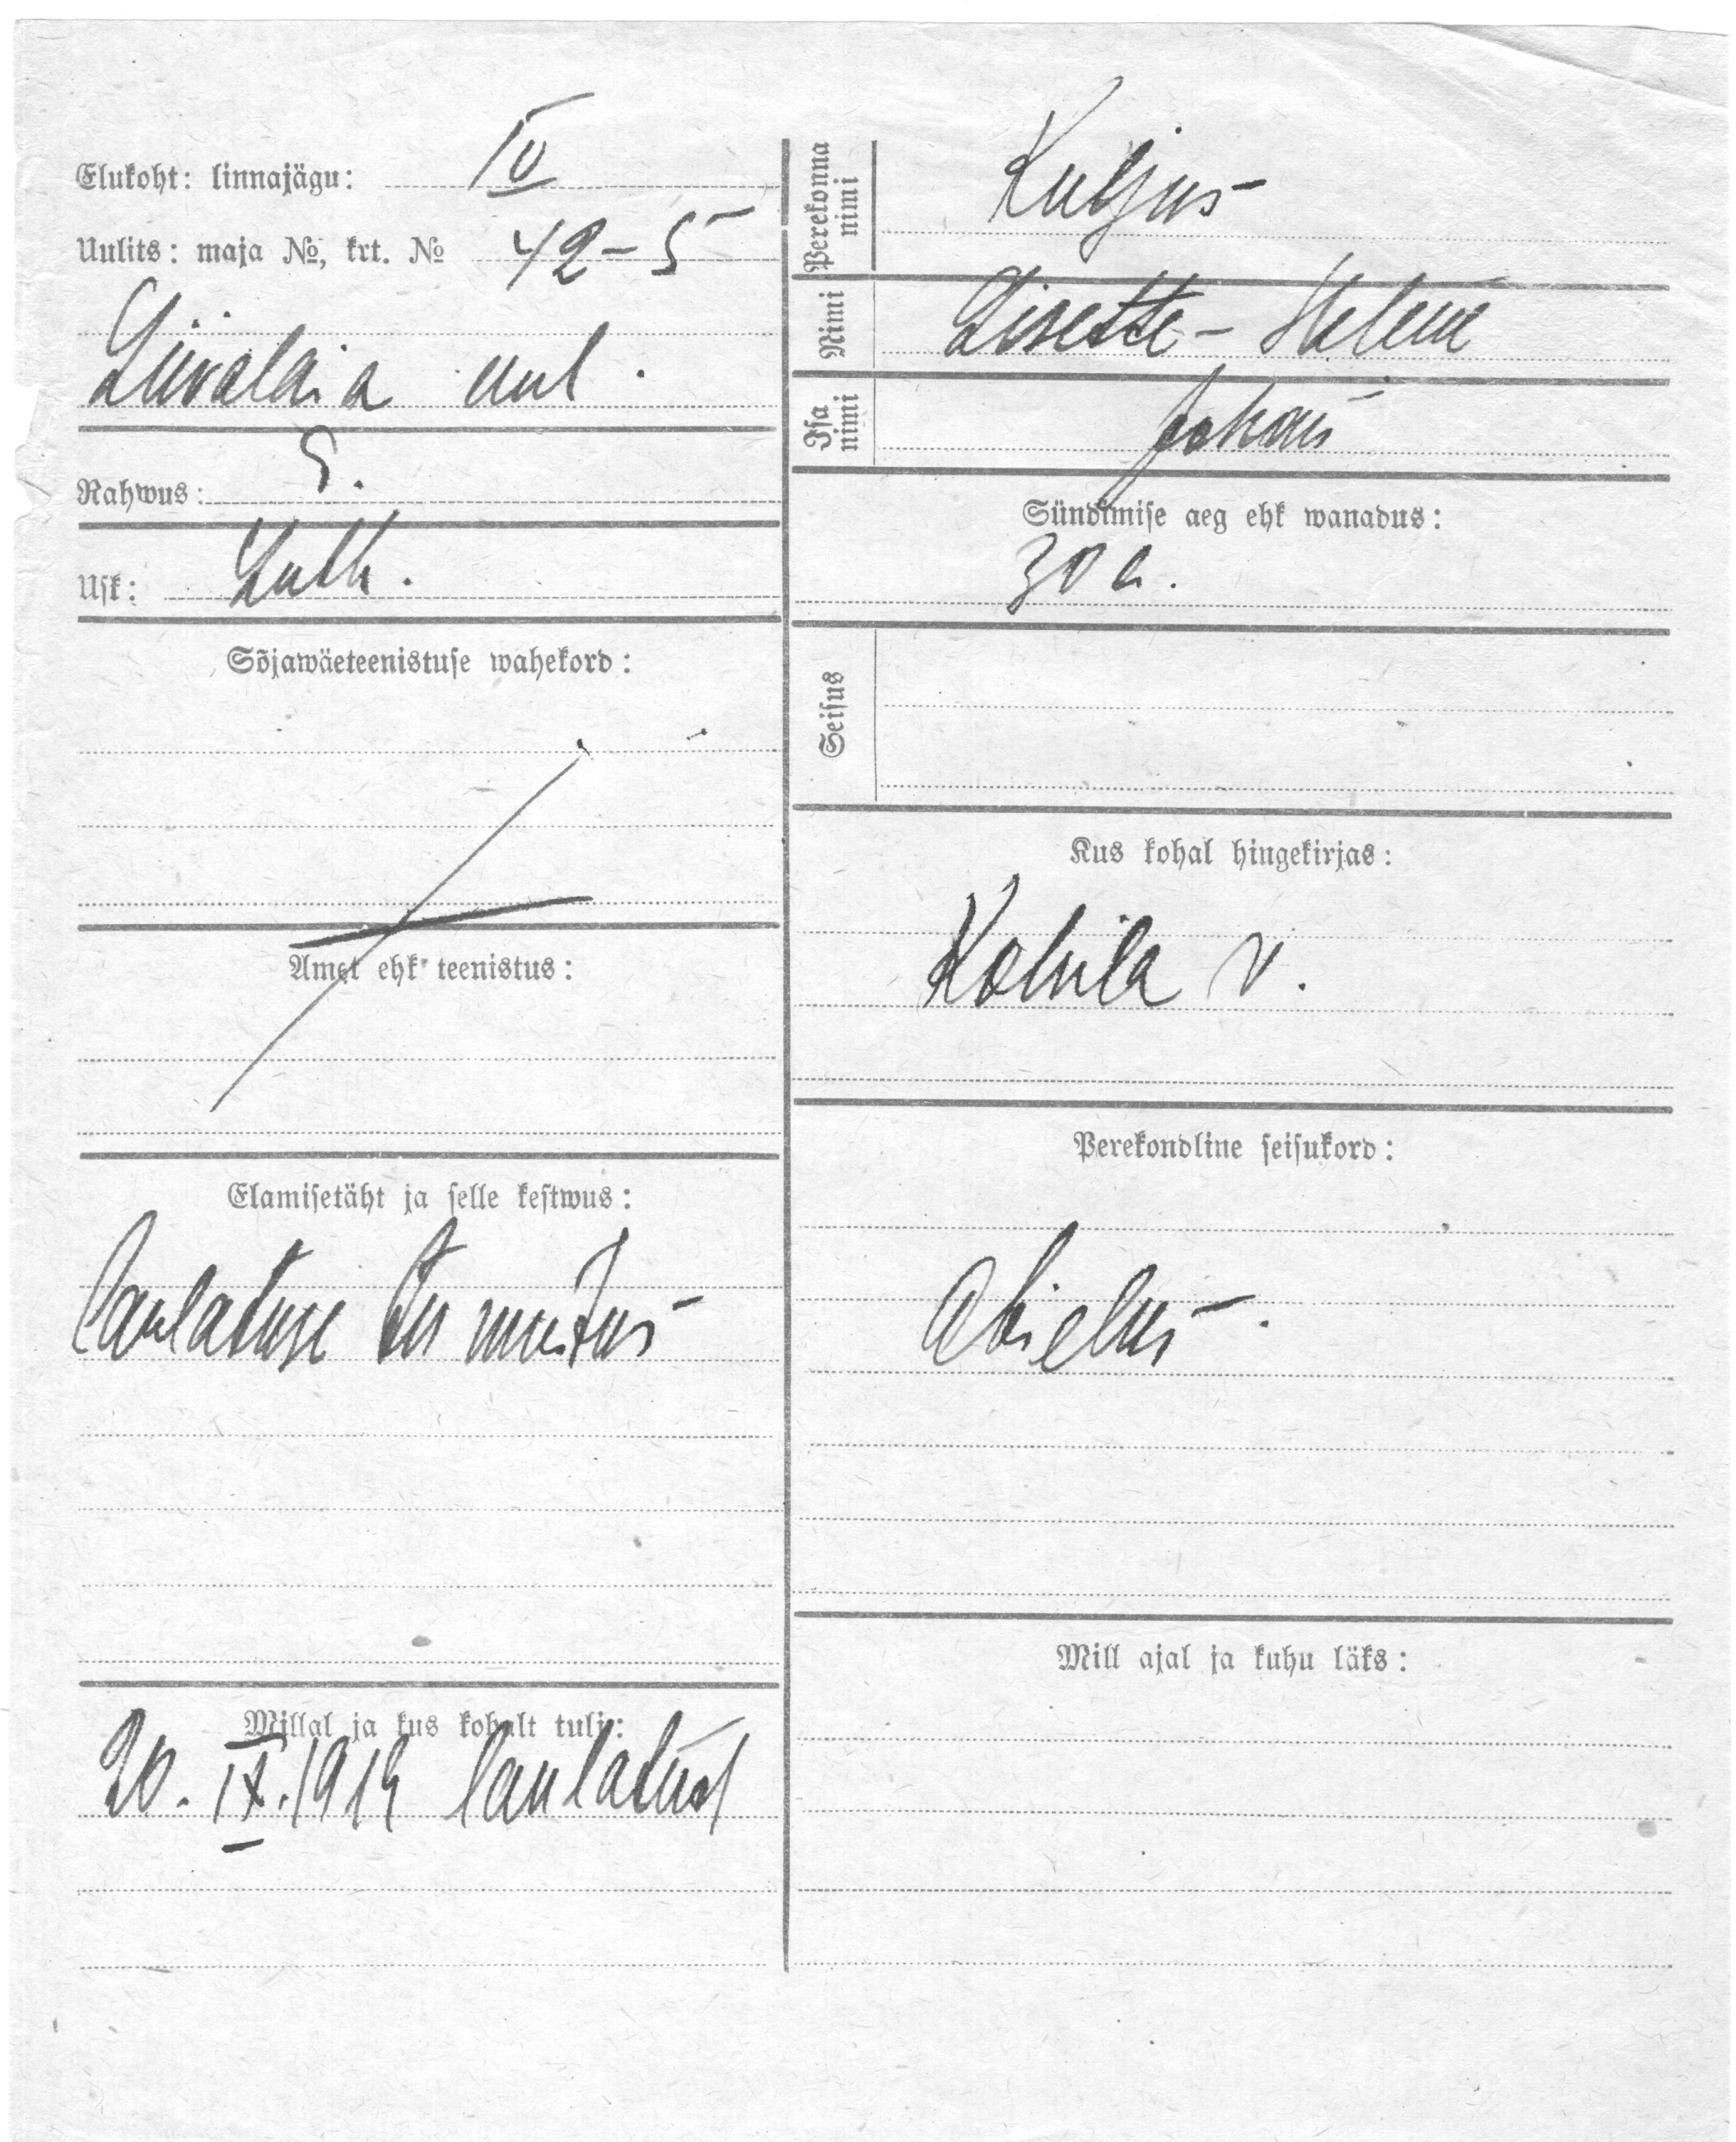 Elukoht: linnajägu: IV
Uulits: maja №, krt. № 42-5
Liivalaia uul.
Rahwus: E.
Usk: Luth.
Sõjawäeteenistuse wahekord:
Amet ehk teenistus:
Elamisetäht ja selle kestwus:
Laulatuse tunnistus
Millal ja kus kohalt tuli:
20. IX. 1919 laulatud
Perekonna nimi Kuljus
Nimi Lisette-Helene
Isa nimi
Sündimise aeg ehk wanadus:
30 a.
Seisus
Kus kohal hingekirjas:
Kohila v.
Perekondline seisukord:
Abielus.
Mill ajal ja kuhu läks: